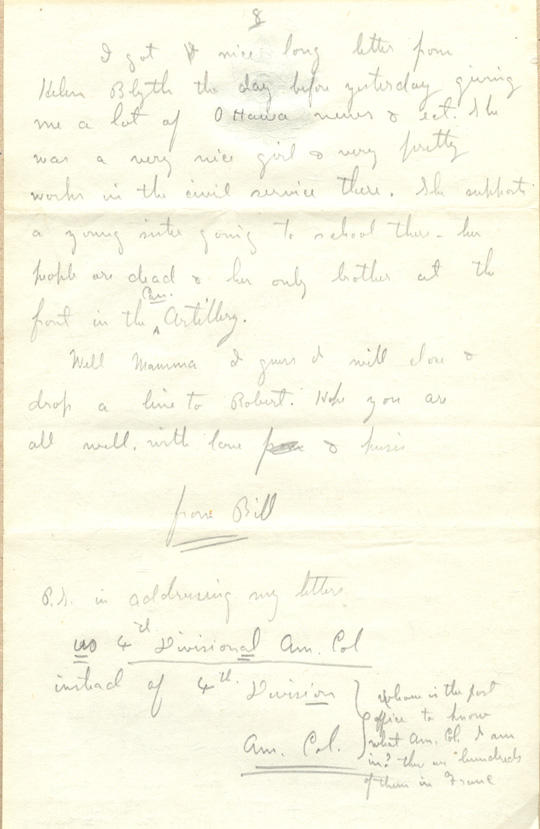 8
I got a nice long letter from
Helen Blyth the day before yesterday giving
me a lot of Ottawa news & ect. She
was a very nice girl & very pretty
works in the civil service there. She supports
a young sister going to school there - her
people are dead & her only brother at the
front in the Can. Artillery.
Well Mamma I guess I will close &
drop a line to Robert. Hope you are
all well. with love & kisses
from Bill
P.S. in addressing my letters
4th Divisional Am. Col
instead of 4th Division
Am. Col.
is the post
office to know
what Am. Col. I am
in? there are "hundreds
of them in France